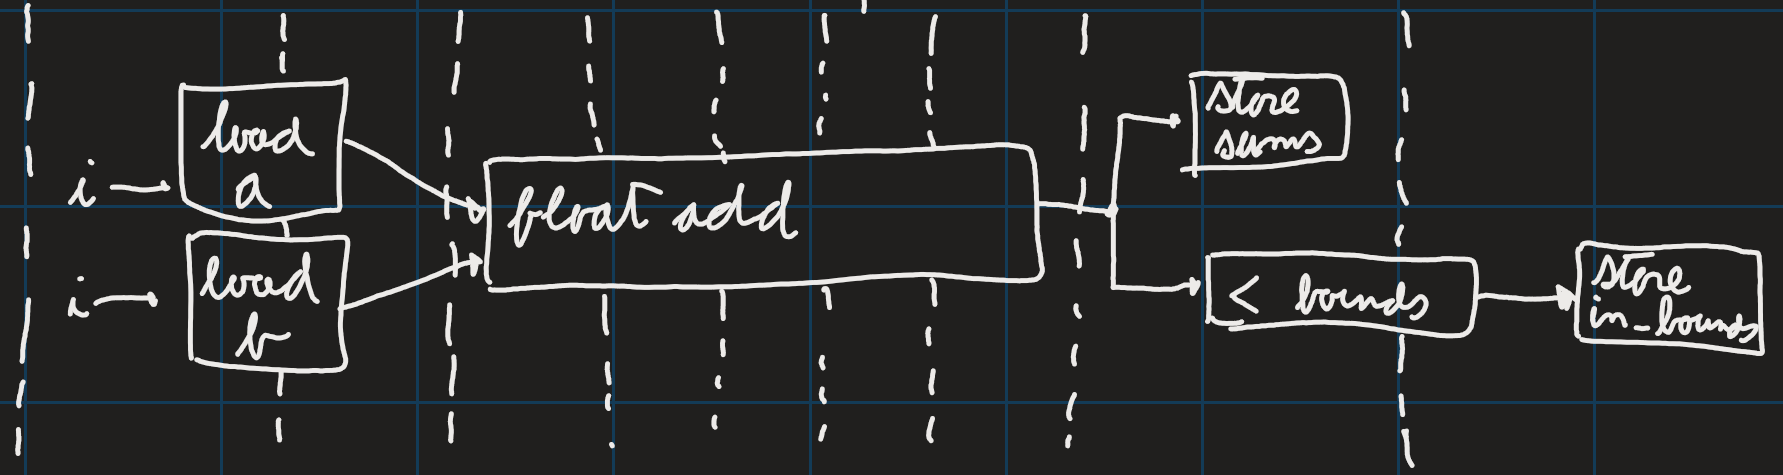 i
load
a
i
load
b
float add
store
sums
< bounds
store
in_bounds